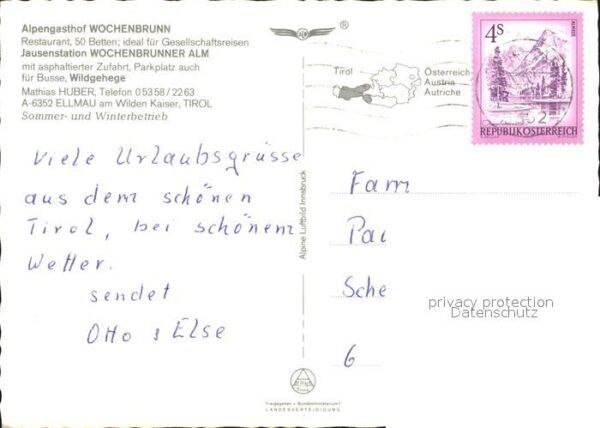 Alpengasthof WOCHENBRUNN
Restaurant, 50 Betten; ideal für Gesellschaftsreisen
Jausenstation WOCHENBRUNNER ALM
mit asphaltierter Zufahrt, Parkplatz auch
für Busse, Wildgehege
Mathias HUBER, Telefon 05358/2263
A-6352 ELLMAU am Wilden Kaiser, TIROL
Sommer- und Winterbetrieb
Viele Urlaubsgrüsse
aus dem schönen
Tirol, bei schönem
Wetter.
sendet
Otto & Else
Alpine Luftbild Innsbruck
ALPINE
Freigegeben v. Bundesministerium f.
LANDESVERTEIDIGUNG
®
Tirol
Österreich
Austria
Autriche
4S
ALMSEE
REPUBLIK ÖSTERREICH
Fam
Pau
Sche
6
privacy protection
Datenschutz